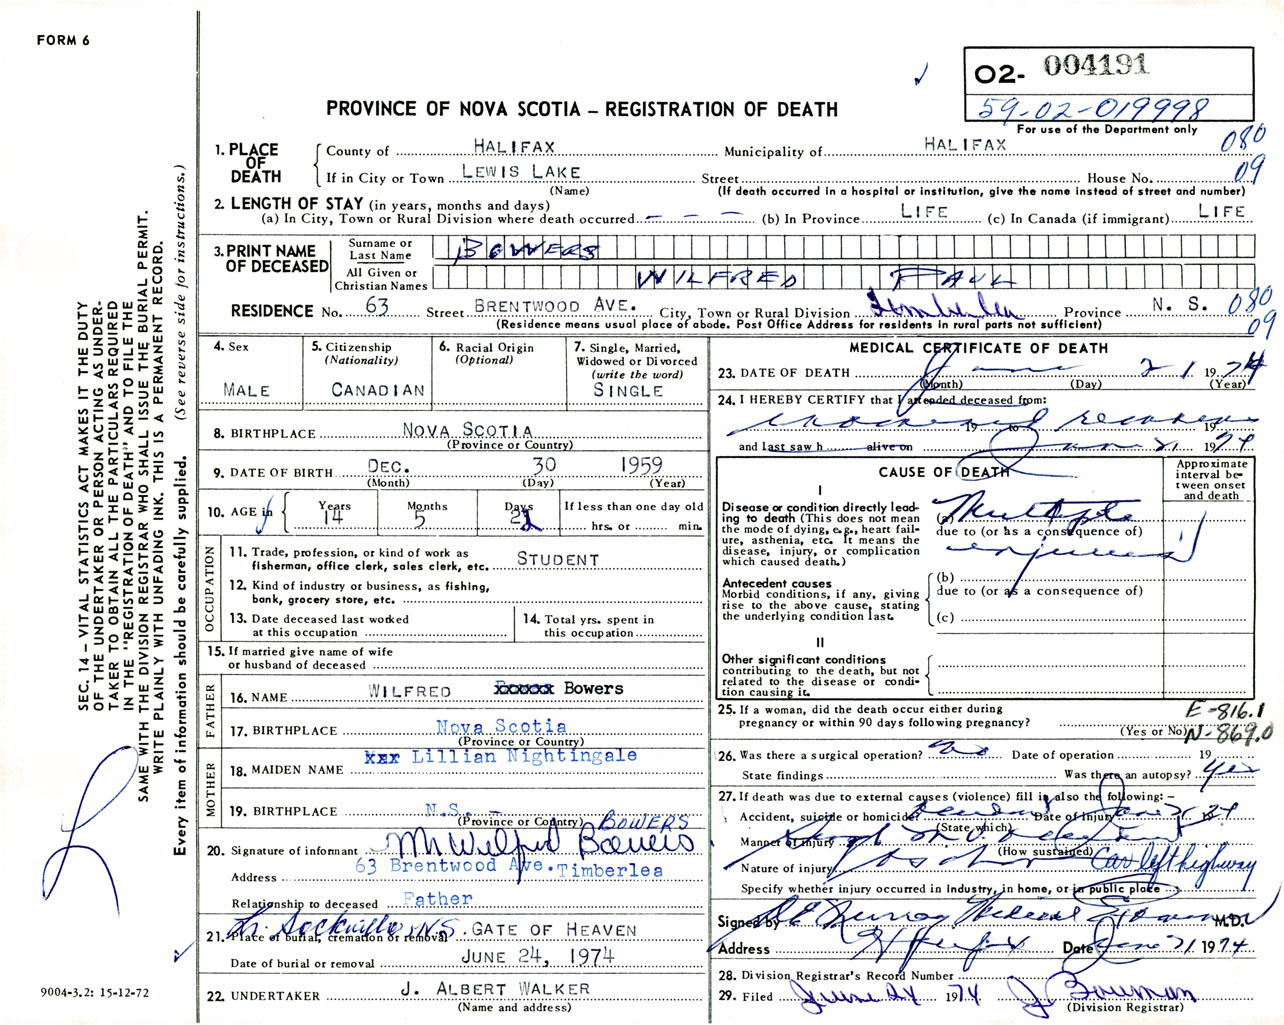 FORM 6
02- 004191
59-02-019998
PROVINCE OF NOVA SCOTIA – REGISTRATION OF DEATH
For use of the Department only
1. PLACE OF DEATH
County of HALIFAX Municipality of HALIFAX 080
If in City or Town LEWIS LAKE Street House No. 09
(Name) (If death occurred in a hospital or institution, give the name instead of street and number)
2. LENGTH OF STAY (in years, months and days)
(a) In City, Town or Rural Division where death occurred – – – (b) In Province LIFE (c) In Canada (if immigrant) LIFE
3. PRINT NAME OF DECEASED
Surname or Last Name BOWERS
All Given or Christian Names WILFRED PAUL
RESIDENCE No. 63 Street BRENTWOOD AVE. City, Town or Rural Division Timberlea Province N. S. 080
(Residence means usual place of abode. Post Office Address for residents in rural parts not sufficient) 09
4. Sex
MALE
5. Citizenship (Nationality)
CANADIAN
6. Racial Origin (Optional)
7. Single, Married, Widowed or Divorced (write the word)
SINGLE
8. BIRTHPLACE NOVA SCOTIA
(Province or Country)
9. DATE OF BIRTH DEC. 30 1959
(Month) (Day) (Year)
10. AGE
Years Months Days If less than one day old
14 5 22 hrs. or min.
OCCUPATION
11. Trade, profession, or kind of work as fisherman, office clerk, sales clerk, etc. STUDENT
12. Kind of industry or business, as fishing, bank, grocery store, etc.
13. Date deceased last worked at this occupation
14. Total yrs. spent in this occupation
15. If married give name of wife or husband of deceased
FATHER
16. NAME WILFRED Bowers
17. BIRTHPLACE Nova Scotia
(Province or Country)
MOTHER
18. MAIDEN NAME Lillian Nightingale
19. BIRTHPLACE N.S. –
(Province or Country) BOWERS
20. Signature of informant Mr Wilfred Bowers
Address 63 Brentwood Ave. Timberlea
Relationship to deceased Father
21. Place of burial, cremation or removal Lr. Sackville N.S. GATE OF HEAVEN
Date of burial or removal JUNE 24, 1974
22. UNDERTAKER J. ALBERT WALKER
(Name and address)
MEDICAL CERTIFICATE OF DEATH
23. DATE OF DEATH June 21 1974
(Month) (Day) (Year)
24. I HEREBY CERTIFY that I attended deceased from:
19 to 19
and last saw h alive on June 21 1974
CAUSE OF DEATH
Approximate interval between onset and death
I
Disease or condition directly leading to death (This does not mean the mode of dying, e.g., heart failure, asthenia, etc. It means the disease, injury, or complication which caused death.)
(a) Multiple
due to (or as a consequence of)
injuries
Antecedent causes
Morbid conditions, if any, giving rise to the above cause, stating the underlying condition last.
(b)
due to (or as a consequence of)
(c)
II
Other significant conditions contributing to the death, but not related to the disease or condition causing it.
25. If a woman, did the death occur either during pregnancy or within 90 days following pregnancy?
(Yes or No)
E-816.1
N-869.0
26. Was there a surgical operation? no Date of operation 19
State findings Was there an autopsy? yes
27. If death was due to external causes (violence) fill in also the following: –
Accident, suicide or homicide? Date of injury June 21 1974
(State which)
Manner of injury
(How sustained)
Nature of injury Car left highway
Specify whether injury occurred in Industry, in home, or in public place
Signed by Murray Medical Examiner M.D.
Address Halifax Date June 21 1974
28. Division Registrar's Record Number
29. Filed June 24 1974 J. Bowman
(Division Registrar)
SEC. 14 – VITAL STATISTICS ACT MAKES IT THE DUTY
OF THE UNDERTAKER OR PERSON ACTING AS UNDER-
TAKER TO OBTAIN ALL THE PARTICULARS REQUIRED
IN THE "REGISTRATION OF DEATH" AND TO FILE THE
SAME WITH THE DIVISION REGISTRAR WHO SHALL ISSUE THE BURIAL PERMIT.
WRITE PLAINLY WITH UNFADING INK. THIS IS A PERMANENT RECORD.
Every item of information should be carefully supplied. (See reverse side for instructions.)
9004-3.2: 15-12-72